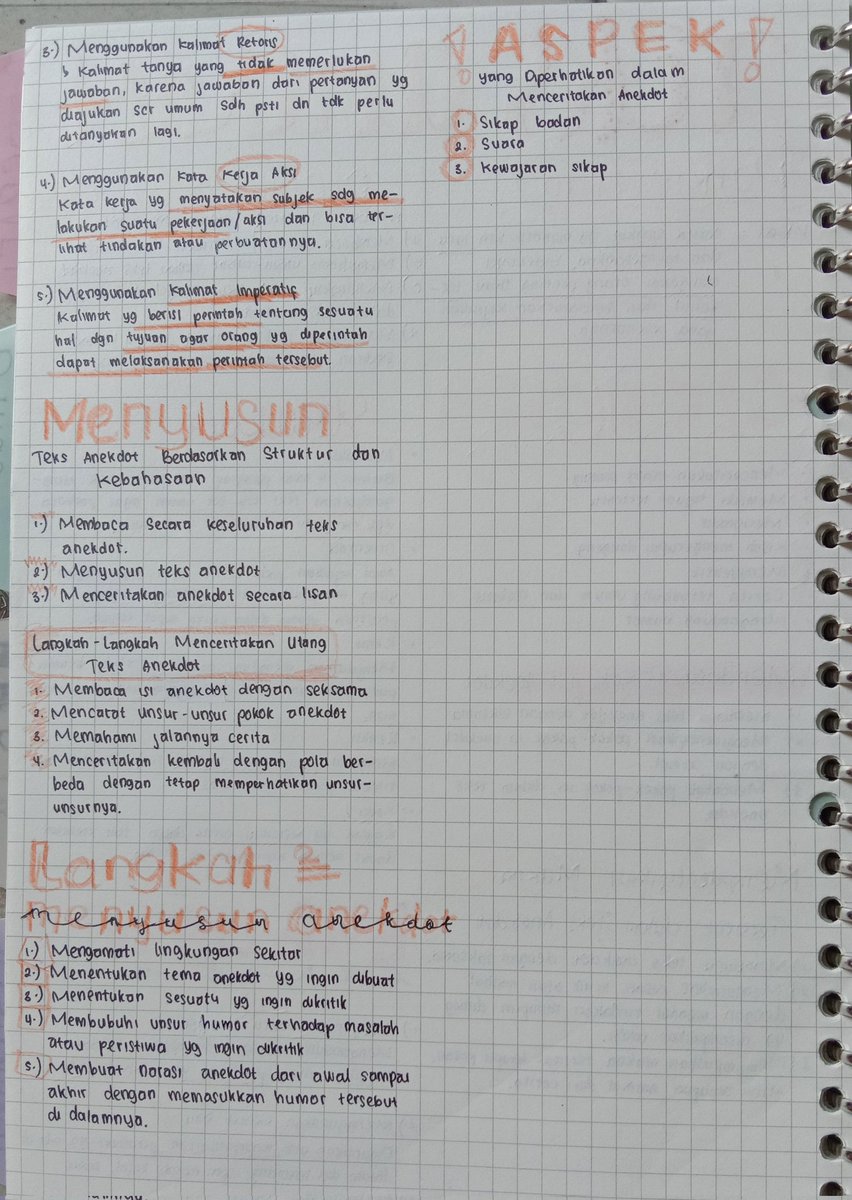 3.) Menggunakan Kalimat Retoris
↳ Kalimat tanya yang tidak memerlukan
jawaban, karena jawaban dari pertanyan yg
diajukan scr umum sdh psti dn tdk perlu
ditanyakan lagi.
4.) Menggunakan Kata Kerja Aksi
Kata kerja yg menyatakan subjek sdg me-
lakukan suatu pekerjaan/aksi dan bisa ter-
lihat tindakan atau perbuatannya.
5.) Menggunakan Kalimat Imperatif
Kalimat yg berisi perintah tentang sesuatu
hal dgn tujuan agar orang yg diperintah
dapat melaksanakan perintah tersebut.
Menyusun
Teks Anekdot Berdasarkan Struktur dan
Kebahasaan
1.) Membaca Secara keseluruhan teks
anekdot.
2.) Menyusun teks anekdot
3.) Menceritakan anekdot secara lisan
Langkah-Langkah Menceritakan Ulang
Teks Anekdot
1. Membaca isi anekdot dengan seksama
2. Mencatat unsur-unsur pokok anekdot
3. Memahami jalannya cerita
4. Menceritakan kembali dengan pola ber-
beda dengan tetap memperhatikan unsur-
unsurnya.
Langkah 2
menyusun anekdot
1.) Mengamati lingkungan sekitar
2.) Menentukan tema anekdot yg ingin dibuat
3.) Menentukan sesuatu yg ingin dikritik
4.) Membubuhi unsur humor terhadap masalah
atau peristiwa yg ingin dikritik
5.) Membuat narasi anekdot dari awal sampai
akhir dengan memasukkan humor tersebut
di dalamnya.
! ASPEK !
yang Diperhatikan dalam
Menceritakan Anekdot
1. Sikap badan
2. Suara
3. Kewajaran sikap